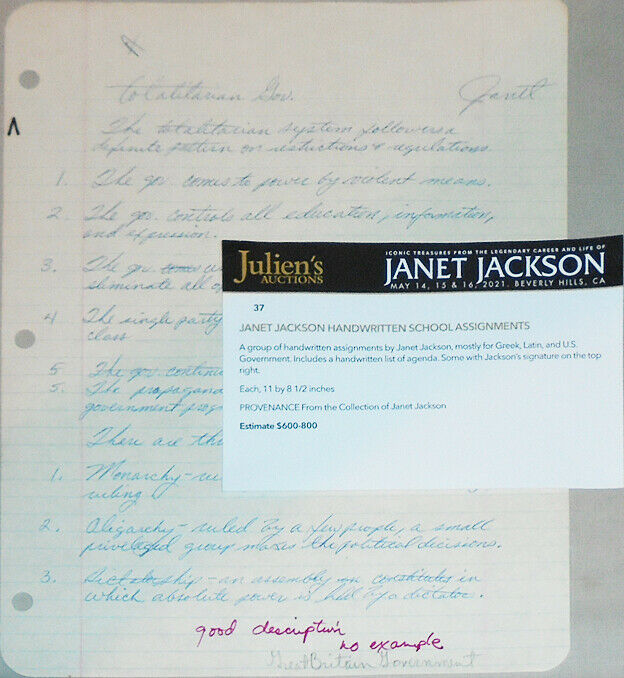 A
Totalitarian Gov.
Janet
The totalitarian system followers a
definite pattern on restrictions & regulations.
1. The gov. comes to power by violent means.
2. The gov. controls all education, information,
and expression.
3. The gov.
eliminate all
4 The single party
class
5 The gov. continu
5. The propagand
government prog
There are th
1. Monarchy - ru
ruling
2. Oligarchy - ruled by a few people, a small
privileged group makes the political decisions.
3. Dictatorship - an assembly constitutes in
which absolute power is held by a dictator.
good description
no example
Great Britain Government
Julien's
AUCTIONS
ICONIC TREASURES FROM THE LEGENDARY CAREER AND LIFE OF
JANET JACKSON
MAY 14, 15 & 16, 2021. BEVERLY HILLS, CA
37
JANET JACKSON HANDWRITTEN SCHOOL ASSIGNMENTS
A group of handwritten assignments by Janet Jackson, mostly for Greek, Latin, and U.S.
Government. Includes a handwritten list of agenda. Some with Jackson's signature on the top
right.
Each, 11 by 8 1/2 inches
PROVENANCE From the Collection of Janet Jackson
Estimate $600-800